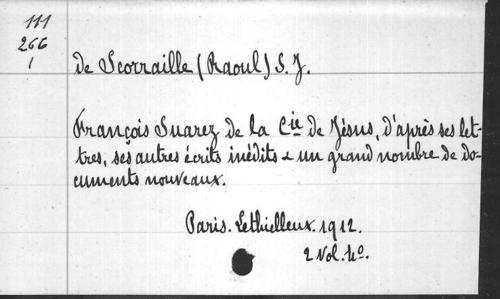 111
266
1
de Scorraille (Raoul) S. J.
François Suarez de la Cie de Jésus, d'après ses let-
tres, ses autres écrits inédits & un grand nombre de do-
cuments nouveaux.
Paris. Lethielleux. 1912.
2 Vol. 4o.